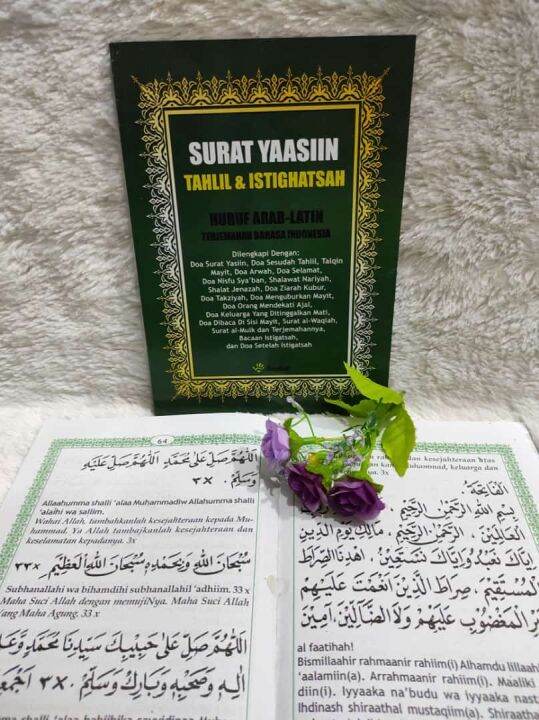 SURAT YAASIIN
TAHLIL & ISTIGHATSAH
HURUF ARAB-LATIN
TERJEMAHAN BAHASA INDONESIA
Dilengkapi Dengan:
Doa Surat Yasiin, Doa Sesudah Tahlil, Talqin
Mayit, Doa Arwah, Doa Selamat,
Doa Nisfu Sya'ban, Shalawat Nariyah,
Shalat Jenazah, Doa Ziarah Kubur,
Doa Takziyah, Doa Menguburkan Mayit,
Doa Orang Mendekati Ajal,
Doa Keluarga Yang Ditinggalkan Mati,
Doa Dibaca Di Sisi Mayit, Surat al-Waqiah,
Surat al-Mulk dan Terjemahannya,
Bacaan Istigatsah,
dan Doa Setelah Istigatsah
64
اَللّٰهُمَّ صَلِّ عَلٰى مُحَمَّدٍ اَللّٰهُمَّ صَلِّ عَلَيْهِ
وَسَلِّمْ. ×٣
Allaahumma shalli 'alaa Muhammadiw Allahumma shalli
'alaihi wa sallim.
Wahai Allah, tambahkanlah kesejahteraan kepada Mu-
hammad. Ya Allah tambahkanlah kesejahteraan dan
keselamatan kepadanya. 3x
سُبْحَانَ اللهِ وَبِحَمْدِهِ سُبْحَانَ اللهِ الْعَظِيْمِ ×٣٣
Subhanallahi wa bihamdihi subhanallahil 'adhiim. 33 x
Maha Suci Allah dengan memujiNya. Maha Suci Allah
Yang Maha Agung. 33 x
اَللّٰهُمَّ صَلِّ عَلٰى حَبِيْبِكَ سَيِّدِنَا مُحَمَّدٍ وَّعَلٰى
اٰلِهٖ وَصَحْبِهٖ وَبَارِكْ وَسَلِّمْ. ×٣
kesejahteraan atas
Muhammad, keluarga dan
3x
اَلْفَاتِحَةُ.
بِسْمِ اللهِ الرَّحْمٰنِ الرَّحِيْمِ.
الْعَالَمِيْنَ. الرَّحْمٰنِ الرَّحِيْمِ. مَالِكِ يَوْمِ الدِّيْنِ
اِيَّاكَ نَعْبُدُ وَاِيَّاكَ نَسْتَعِيْنُ. اِهْدِنَا الصِّرَاطَ
الْمُسْتَقِيْمَ. صِرَاطَ الَّذِيْنَ اَنْعَمْتَ عَلَيْهِمْ
غَيْرِ الْمَغْضُوْبِ عَلَيْهِمْ وَلَا الضَّالِّيْنَ. اٰمِيْنَ
al faatihah!
Bismillaahir rahmaanir rahiim(i) Alhamdu lillaahi
'aalamiin(a). Arrahmaanir rahiim(i). Maaliki
diin(i). Iyyaaka na'budu wa iyyaaka nasta
Ihdinash shiraathal mustaqiim(a). Shiraathal